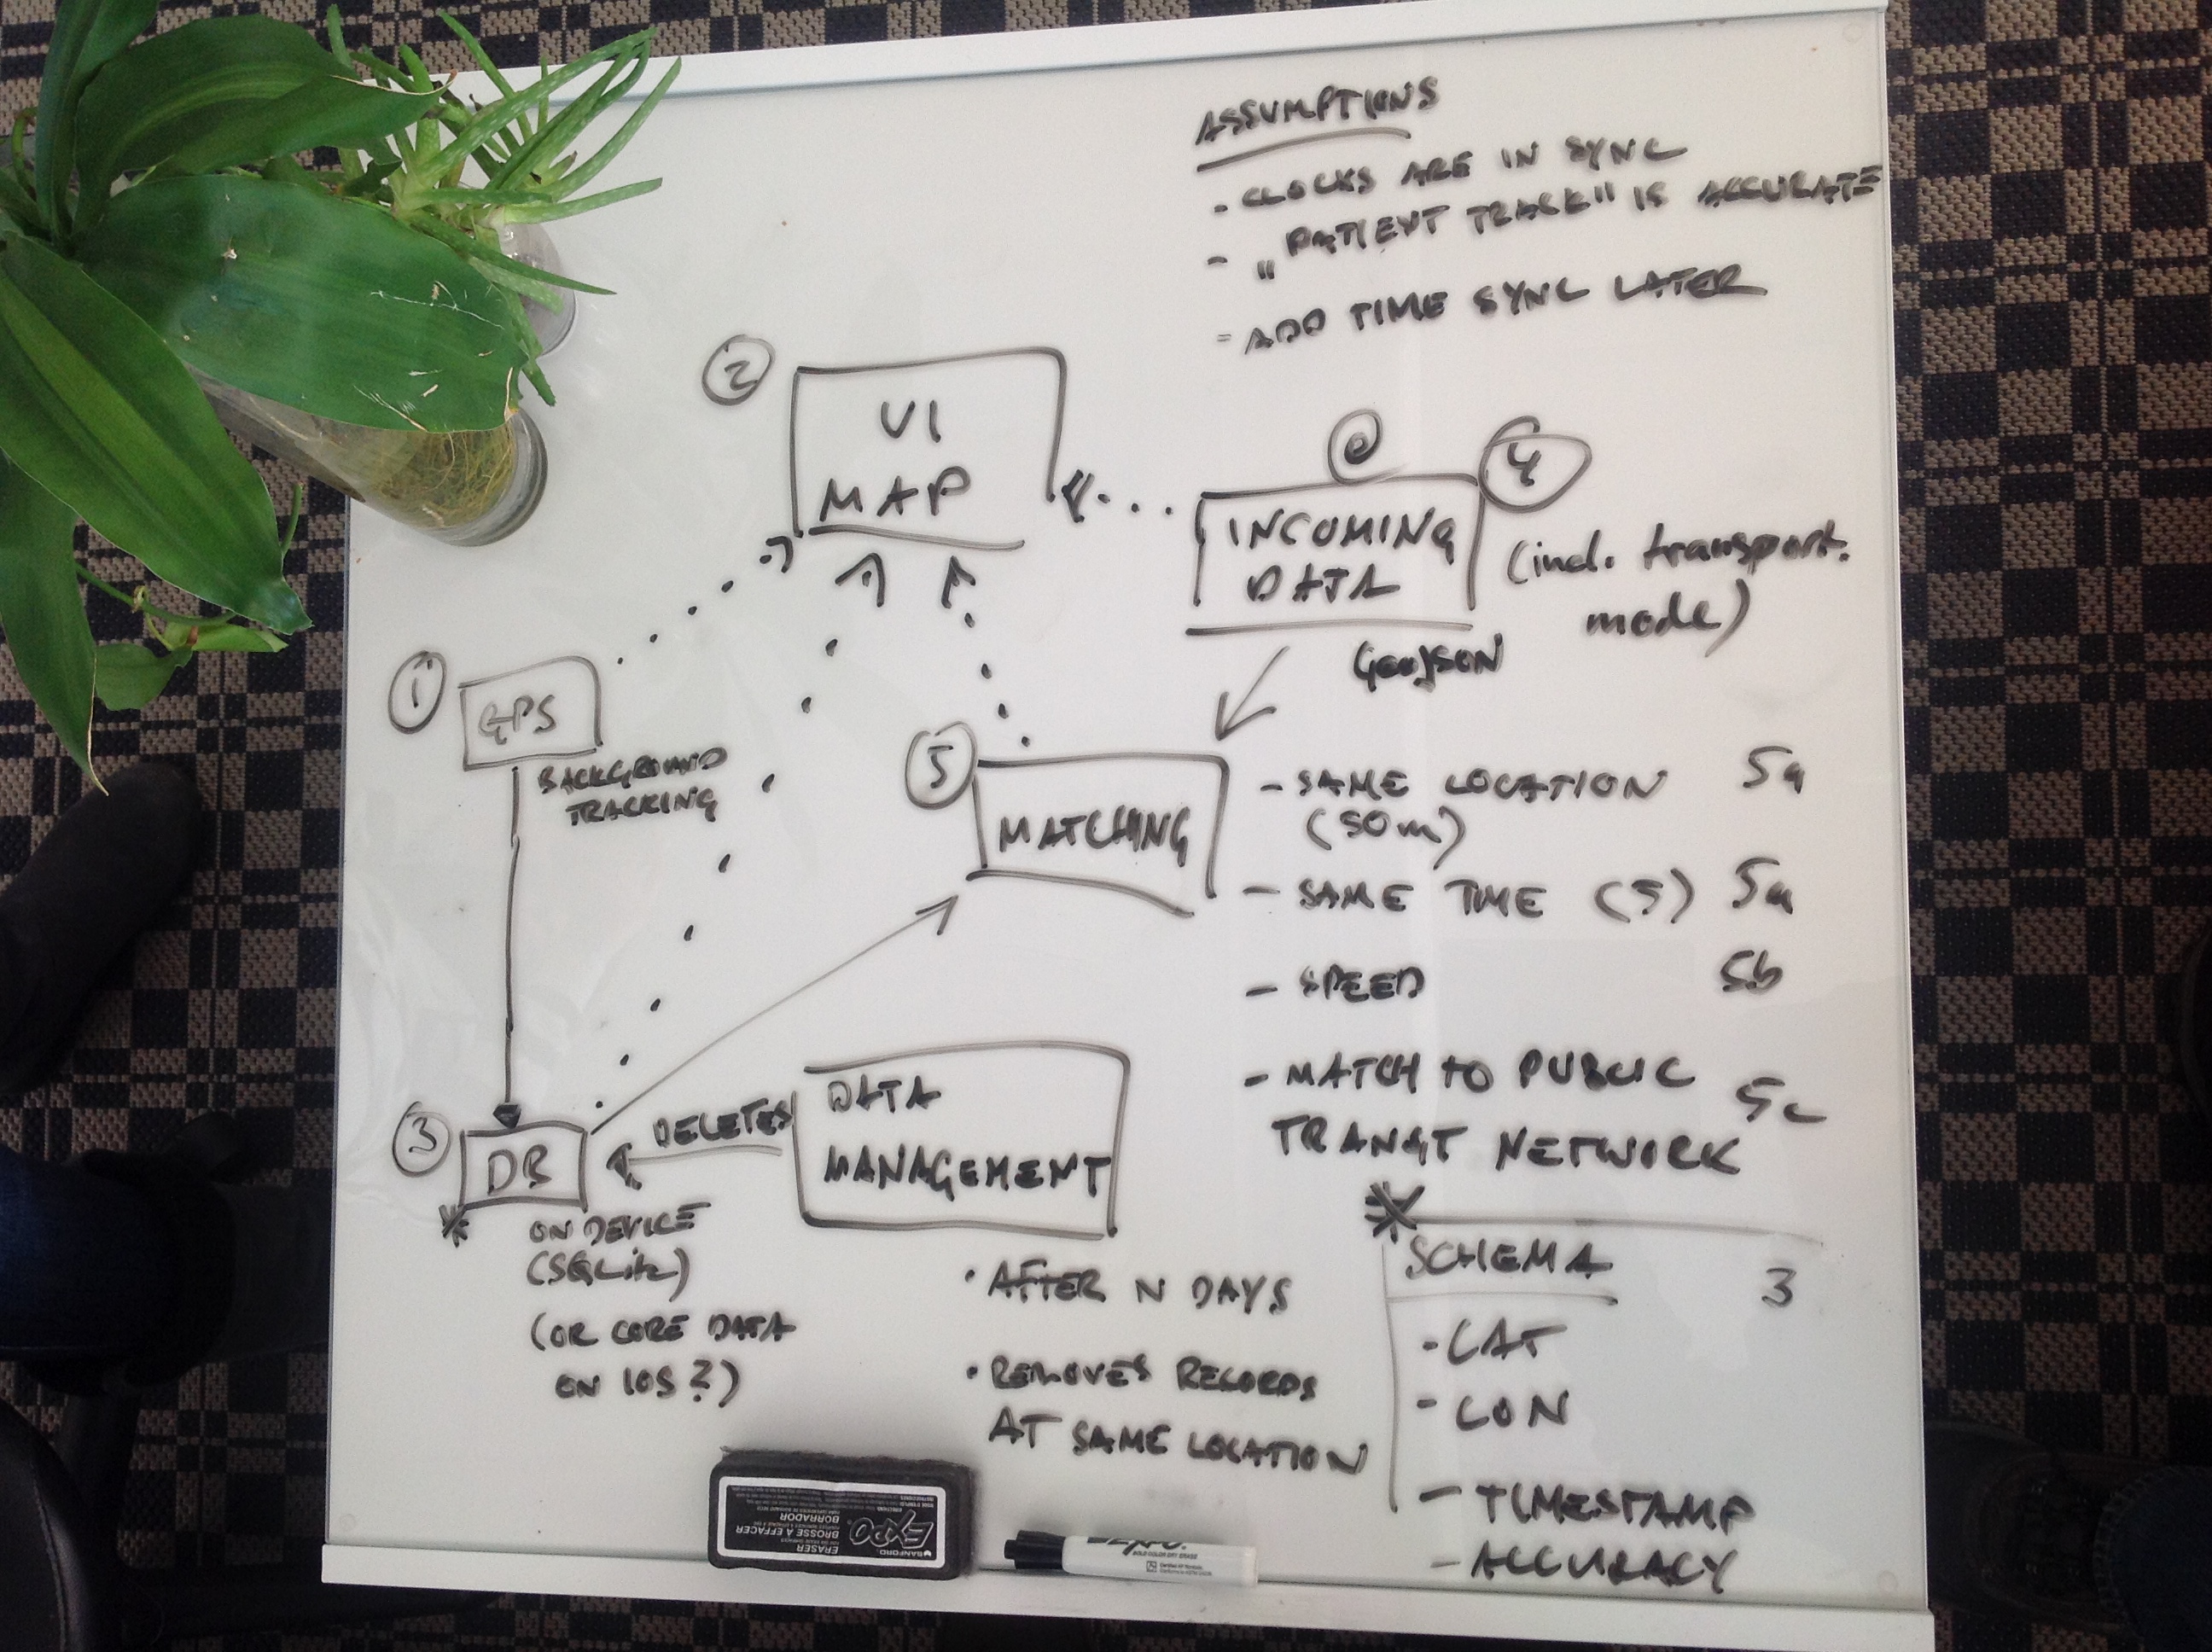 ASSUMPTIONS
- CLOCKS ARE IN SYNC
- „PATIENT TRACK" IS ACCURATE
= ADD TIME SYNC LATER
2
UI
MAP
4
INCOMING
DATA
(incl. transport.
mode)
GeoJSON
1
GPS
BACKGROUND
TRACKING
5
MATCHING
- SAME LOCATION 5a
(50m)
- SAME TIME (5) 5a
- SPEED 5b
- MATCH TO PUBLIC
5c
TRANSIT NETWORK
3
DB
DELETES
DATA
MANAGEMENT
* ON DEVICE
(SQLite)
(OR CORE DATA
ON IOS?)
• AFTER N DAYS
• REMOVES RECORDS
AT SAME LOCATION
*
SCHEMA 3
- LAT
- LON
- TIMESTAMP
- ACCURACY
SANFORD
EXPO
ERASER
BROSSE A EFFACER
BORRADOR